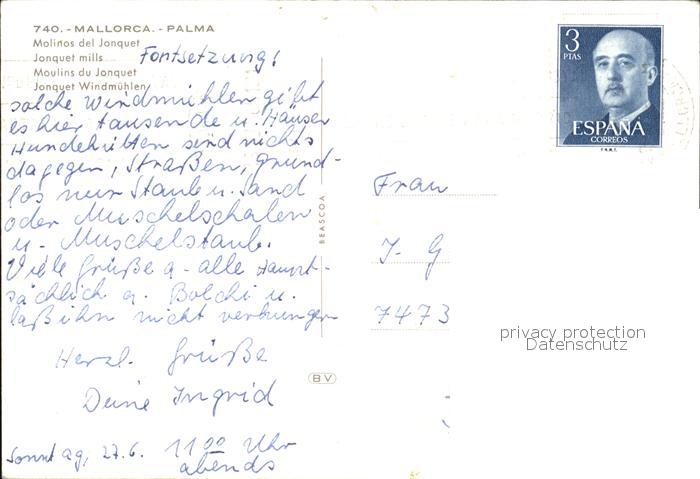 740. - MALLORCA. - PALMA
Molinos del Jonquet
Jonquet mills
Moulins du Jonquet
Jonquet Windmühlen
Fontsetzung!
solche Windmühlen gibt
es hier tausende u. Häuser
Hundehütten sind nichts
dagegen, Straßen, grund-
los nur Staub u. Sand
oder Muschelschalen
u. Muschelstaub.
Viele Grüße a. alle Haupt-
sächlich a. Bolchi u.
laß ihn nicht verhungern
Herzl. Grüße
Deine Ingrid
Sonntag, 27.6. 11 00 Uhr
abends
BEASCOA
BV
3
PTAS
ESPAÑA
CORREOS
F.N.M.T.
Frau
J- G
7473
privacy protection
Datenschutz